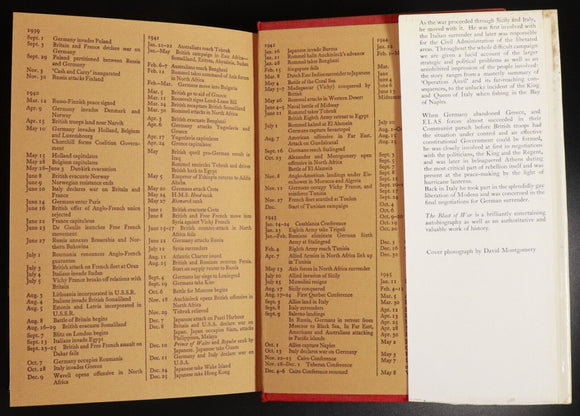 1939
Sept. 1 Germany invades Poland
Sept. 3 Britain and France declare war on
Germany
Sept. 29 Poland partitioned between Russia
and Germany
Nov. 3 'Cash and Carry' inaugurated
Nov. 30 Russia attacks Finland
1940
Mar. 12 Russo-Finnish peace signed
Apr. 9 Germany invades Denmark and
Norway
Apr. 15 British troops land near Narvik
May 10 Germany invades Holland, Belgium
and Luxembourg
Churchill forms Coalition Govern-
ment
May 15 Holland capitulates
May 28 Belgium capitulates
May 28–June 3 Dunkirk evacuation
June 8 British evacuate Norway
June 9 Norwegian resistance ends
June 10 Italy declares war on Britain and
France
June 14 Germans enter Paris
June 16 British offer of Anglo-French union
rejected
June 22 France capitulates
June 23 De Gaulle issues Free French
movement
June 27 Russia annexes Bessarabia and Nor-
thern Bukovina
July 1 Roumania renounces Anglo-French
guarantee
July 3 British attack on French fleet at Oran
July 4 Italians invade Sudan
July 5 Vichy France breaks off relations with
Britain
Aug. 3 Lithuania incorporated in U.S.S.R.
Aug. 4 Italians invade British Somaliland
Aug. 5 Estonia and Latvia incorporated in
U.S.S.R.
Aug. 8 Battle of Britain begins
Aug. 16–19 British evacuate Somaliland
Sept. 7 Blitz on London begins
Sept. 13 Italians invade Egypt
Sept. 23–25 British and Free French assault on
Dakar fails
Oct. 7 Germany occupies Roumania
Oct. 28 Italy invades Greece
Dec. 9 Wavell opens offensive in North
Africa
1941
Jan. 21–22 Australians reach Tobruk
Jan.–May British campaign in East Africa
Somaliland, Eritrea, Abyssinia, Sudan
Feb. 6–7 Australians reach Benghazi
Feb. 12 Rommel takes command of Axis forces
in North Africa
Feb.–Mar. Germans move into Bulgaria
Mar. 5 British go to aid of Greece
Mar. 11 Roosevelt signs Lend-Lease Bill
Mar. 24 British recapture British Somaliland
Mar. 24 Rommel attacks in North Africa
Apr. 3 British evacuate Benghazi
Apr. 6 Germany attacks Yugoslavia and
Greece
Apr. 17 Yugoslavia capitulates
Apr. 24 Greece capitulates
May 1 British quell pro-German revolt in
Iraq
Rommel reaches Tobruk and drives
British back to Egypt
May 5 Emperor of Ethiopia returns to Addis
Ababa
May 20 Germans attack Crete
May 24 H.M.S. Hood sunk
May 27 Bismarck sunk
June 1 British evacuate Crete
June 8 British and Free French move into
Syria against Vichy French
June 15–17 British counter-attack in North
Africa fails
June 22 Germany attacks Russia
July 12 Syria surrenders
Aug. 11 Atlantic Charter issued
Aug. 25 British and Russians overrun Persia.
Start on supply route to Russia
Sept. 4 Germans lay siege to Leningrad
Sept. 19 Germans take Kiev
Oct. 6 Battle for Moscow begins
Nov. 18 Auchinleck opens British offensive in
North Africa
Nov. 29 Tobruk relieved
Dec. 7 Japanese attack on Pearl Harbour
Dec. 8 Britain and U.S.A. declare war on
Japan. Japan occupies Siam, attacks
Philippines, Malaya
Dec. 10 Prince of Wales and Repulse sunk by
Japanese. Japanese take Guam
Dec. 11 Germany and Italy declare war on
U.S.A.
Dec. 22 Japanese take Wake Island
Dec. 25 Japanese take Hong Kong
1942
Jan. 16 Japanese invade Burma
Jan. 21 Rommel halts Auchinleck's advance
Jan. 29 Rommel takes Benghazi
Feb. 15 Singapore falls
Mar. 8 Dutch East Indies surrender to Japanese
May 4 Battle of the Coral Sea
May 5–7 Madagascar (Vichy) conquered by
British
May 26 Rommel attacks in Western Desert
June 4 Naval battle of Midway
June 21 Rommel takes Tobruk
British Eighth Army retreat to Egypt
July 1 Rommel halted at El Alamein
Germans capture Sevastopol
Aug. 7 American offensive in Far East.
Attack on Guadalcanal
Sept. 16 Germans reach Stalingrad
Oct. 23 Alexander and Montgomery open
offensive in North Africa
Battle of El Alamein
Nov. 8 Anglo-American landings under Eis-
enhower in Morocco and Algeria
Nov. 11 Germans occupy Vichy France, and
northern Tunisia
Nov. 27 French fleet scuttled at Toulon
Dec. Start of Tunisian campaign
1943
Jan. 14–24 Casablanca Conference
Jan. 23 Eighth Army take Tripoli
Jan.–Feb. Russians eliminate German Sixth
Army at Stalingrad
Feb. 4 Eighth Army reach Tunisia
Apr. 7 Allied Armies in North Africa link up
in Tunisia
May 13 Axis forces in North Africa surrender
July 10 Allies invade Sicily
July 25 Mussolini resigns
Aug. 17 Sicily conquered
Aug. 17–24 First Quebec Conference
Sept. 3 Allies land in Italy
Sept. 8 Italy surrenders
Sept. 9 Salerno landings
In Russia, Germans in retreat from
Moscow to Black Sea. In Far East,
Americans and Australians attacking
in Pacific islands
Oct. 1 Allies capture Naples
Oct. 13 Italy declares war on Germany
Nov. 22–25 Cairo Conference
Nov. 28–Dec. 1 Teheran Conference
Dec. 4–6 Cairo Conference resumed
1944
1945
As the war proceeded through Sicily and Italy,
he moved with it. He was involved with
the Italian surrender and later was responsible
for the Civil Administration of the liberated
areas. Throughout the whole difficult campaign
we are given a lucid account of the larger
strategic and political problems as well as an
uninhibited impression of the people involved:
the story ranges from a masterly summary of
'Operation Anvil' and its far-reaching con-
sequences, to the unlucky incident of the King
and Queen of Italy when fishing in the Bay
of Naples.
When Germany abandoned Greece, and
ELAS forces almost succeeded in their
Communist putsch before British troops had
the situation under control and an effective
constitutional Government could be formed,
he was closely involved at first in negotiations
with the politicians, the King and the Regent,
and was later in beleaguered Athens during
the most critical part of rebellion itself and was
present at the peace-making by the light of
hurricane lanterns.
Back in Italy he took part in the splendidly gay
liberation of Modena and was concerned in the
final negotiations for German surrender.
The Blast of War is a brilliantly entertaining
autobiography as well as an authoritative and
valuable work of history.
Cover photograph by David Montgomery